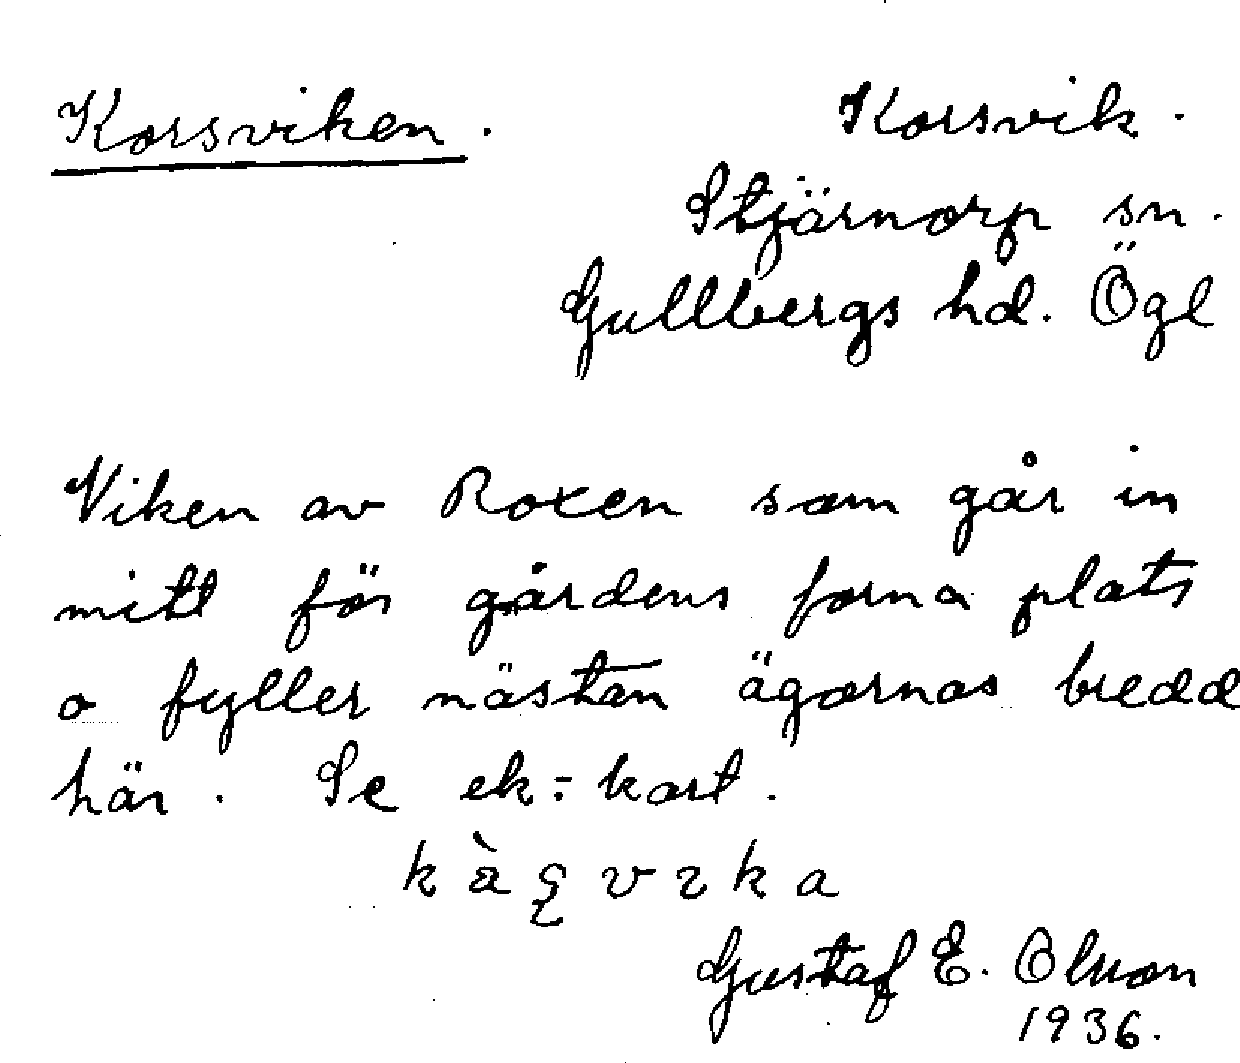 Korsviken.
Korsvik.
Stjärnorp sn.
Gullbergs hd. Ögl
Viken av Roxen som går in
mitt för gårdens forna plats
o fyller nästan ägornas bredd
här. Se ek:kart.
Gustaf E. Olsson
1936.